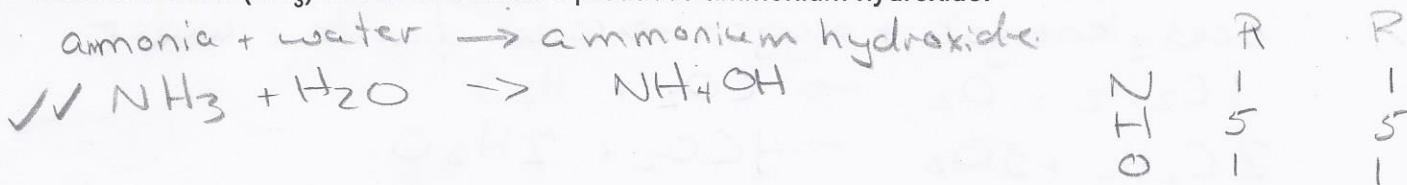 ammonia + water → ammonium hydroxide R R
✓✓ NH3 + H2O → NH4OH N 1 1
H 5 5
O 1 1